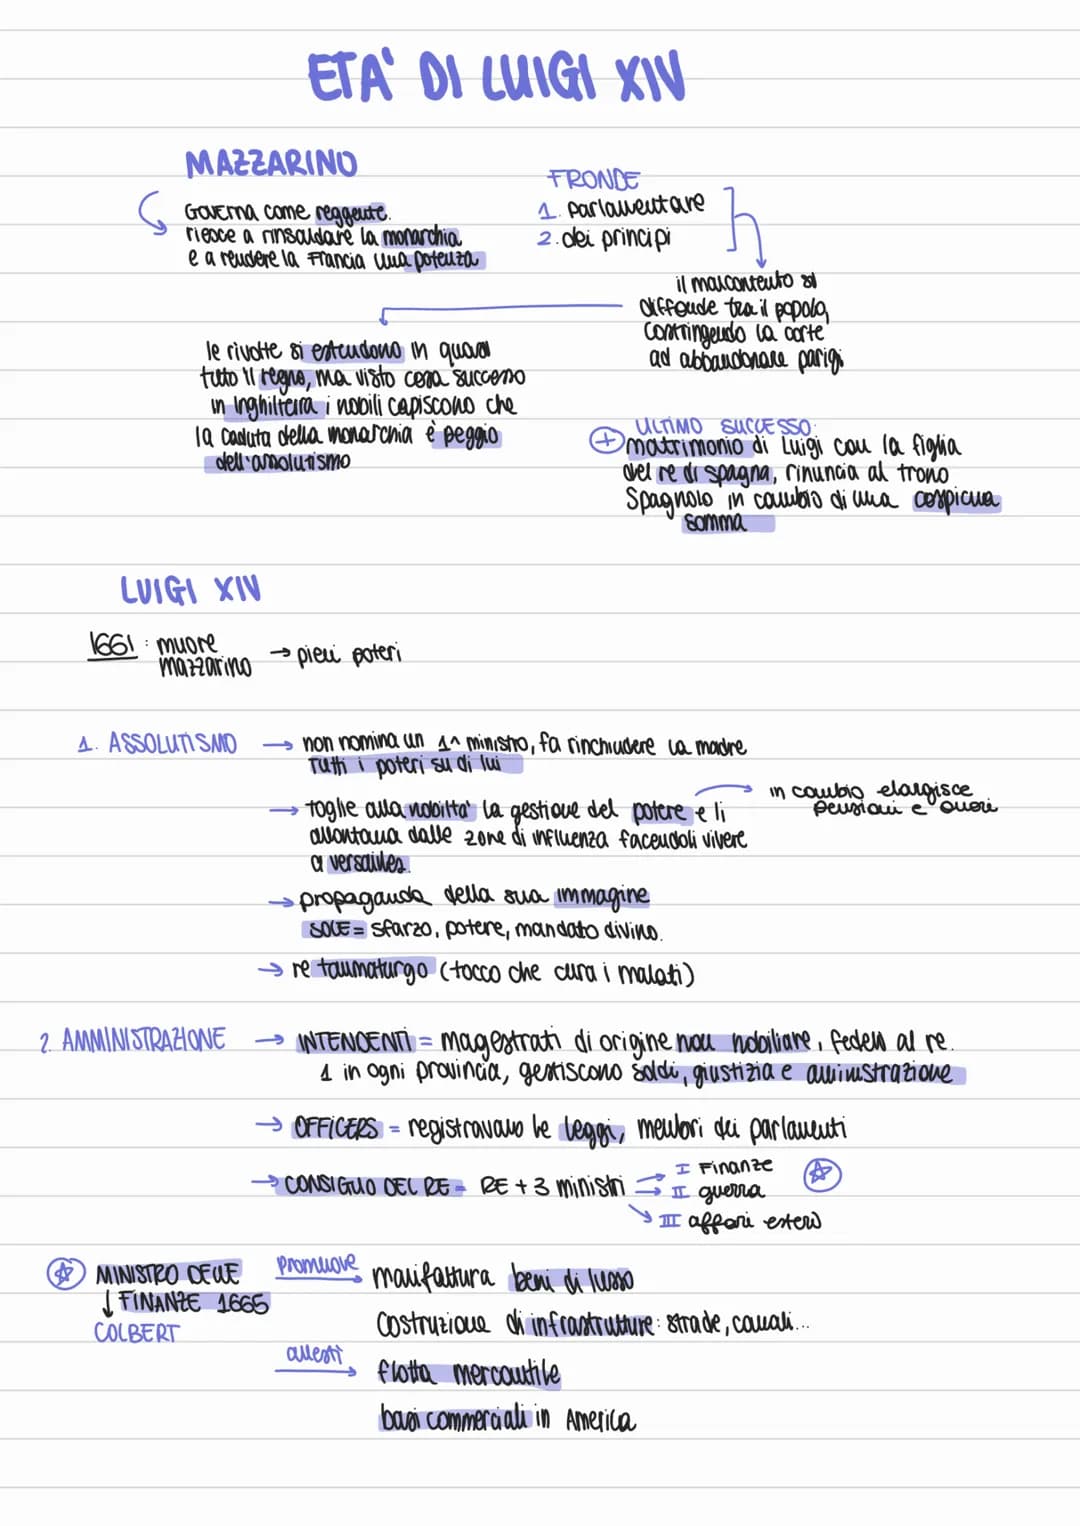 ETA' DI LUIGI XIV
MAZZARINO
Governa come reggente.
riesce a rinsaldare la monarchia
e a rendere la Francia una potenza
FRONDE
1. parlamentare
2. dei principi
il malcontento si
diffonde tra il popolo,
costringendo la corte
ad abbandonare parigi
le rivolte si estendono in quasi
tutto il regno, ma visto cosa successo
in Inghilterra i nobili capiscono che
la caduta della monarchia è peggio
dell'assolutismo
ULTIMO SUCCESSO:
+ matrimonio di Luigi con la figlia
del re di spagna, rinuncia al trono
Spagnolo in cambio di una cospicua
somma
LUIGI XIV
1661: muore
mazzarino → pieni poteri
1. ASSOLUTISMO → non nomina un 1^ ministro, fa rinchiudere la madre
Tutti i poteri su di lui
→ toglie alla nobiltà la gestione del potere e li
allontana dalle zone di influenza facendoli vivere
a versailles.
in cambio elargisce
pensioni e onori
→ propaganda della sua immagine
SOLE = sfarzo, potere, mandato divino.
→ re taumaturgo (tocco che cura i malati)
2. AMMINISTRAZIONE → INTENDENTI = magestrati di origine non nobiliare, fedeli al re.
1 in ogni provincia, gestiscono soldi, giustizia e amministrazione
→ OFFICERS = registravano le leggi, membri dei parlamenti
→ CONSIGLIO DEL RE = RE + 3 ministri
→ I Finanze
→ II guerra
→ III affari esteri
MINISTRO DELLE
↓ FINANZE 1665
COLBERT
promuove → manifattura beni di lusso
Costruzione di infrastrutture: strade, canali...
allestì → flotta mercantile
basi commerciali in America